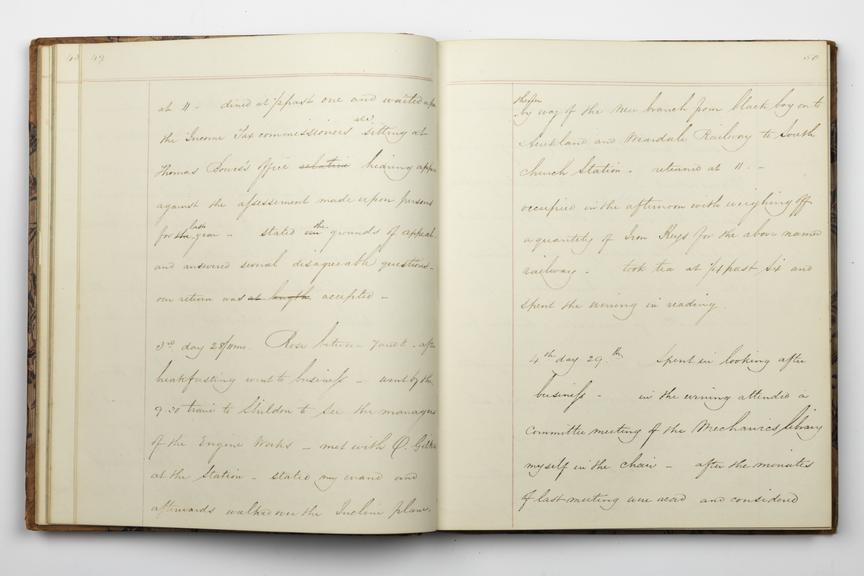 48 49
at 11 - dined at ½ past one and waited upon
the Income Tax commissioners sitting at
Thomas Bowes's Office relative hearing appeals
against the assessement made upon persons
for the last year - stated the grounds of appeal
and answered several disagreeable questions -
our return was at length accepted -
3rd day 28/11mo. Rose between 7 and 8. after
breakfasting went to business - went by the
9.30 train to Shildon to see the managers
of the Engine Works - met with
at the Station - stated my errand and
afterwards walked over the Incline plane,
50
by way of the new branch from black boy on to
Auckland and Weardale Railway to South
Church Station. returned at 11. -
occupied in the afternoon with weighing off
a quantity of Iron Keys for the above named
railway - took tea at ½ past six and
spent the evening in reading.
4th day 29.th Spent in looking after
business - in the evening attended a
committee meeting of the Mechanics library
myself in the chair - after the minutes
of last meeting were read and considered